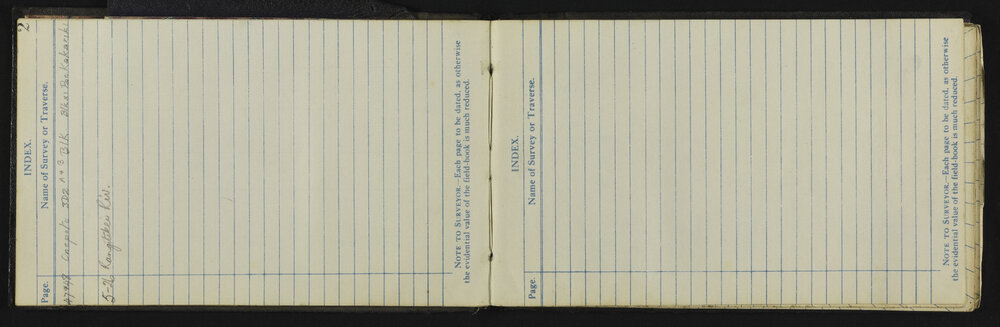 2
INDEX.
Page. Name of Survey or Traverse.
47 & 48 3D2 A & 3 Blk Blk XI Paekakariki
5-26 Rangitikei Riv.
NOTE TO SURVEYOR.—Each page to be dated, as otherwise
the evidential value of the field-book is much reduced.
INDEX.
Page. Name of Survey or Traverse.
NOTE TO SURVEYOR.—Each page to be dated, as otherwise
the evidential value of the field-book is much reduced.